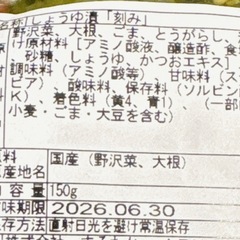 名称 しょうゆ漬「刻み」
野沢菜、大根、ごま、とうがらし、
け原材料［アミノ酸液、醸造酢、食
、砂糖、しょうゆ、かつおエキス］
調味料（アミノ酸等）、甘味料（ス
ビア）、酸味料、保存料（ソルビン
K）、着色料（黄4、青1）、（一部
小麦・ごま・大豆を含む）
料
産地名 国産（野沢菜、大根）
容量 150g
味期限 2026.06.30
存方法 直射日光を避け常温保存